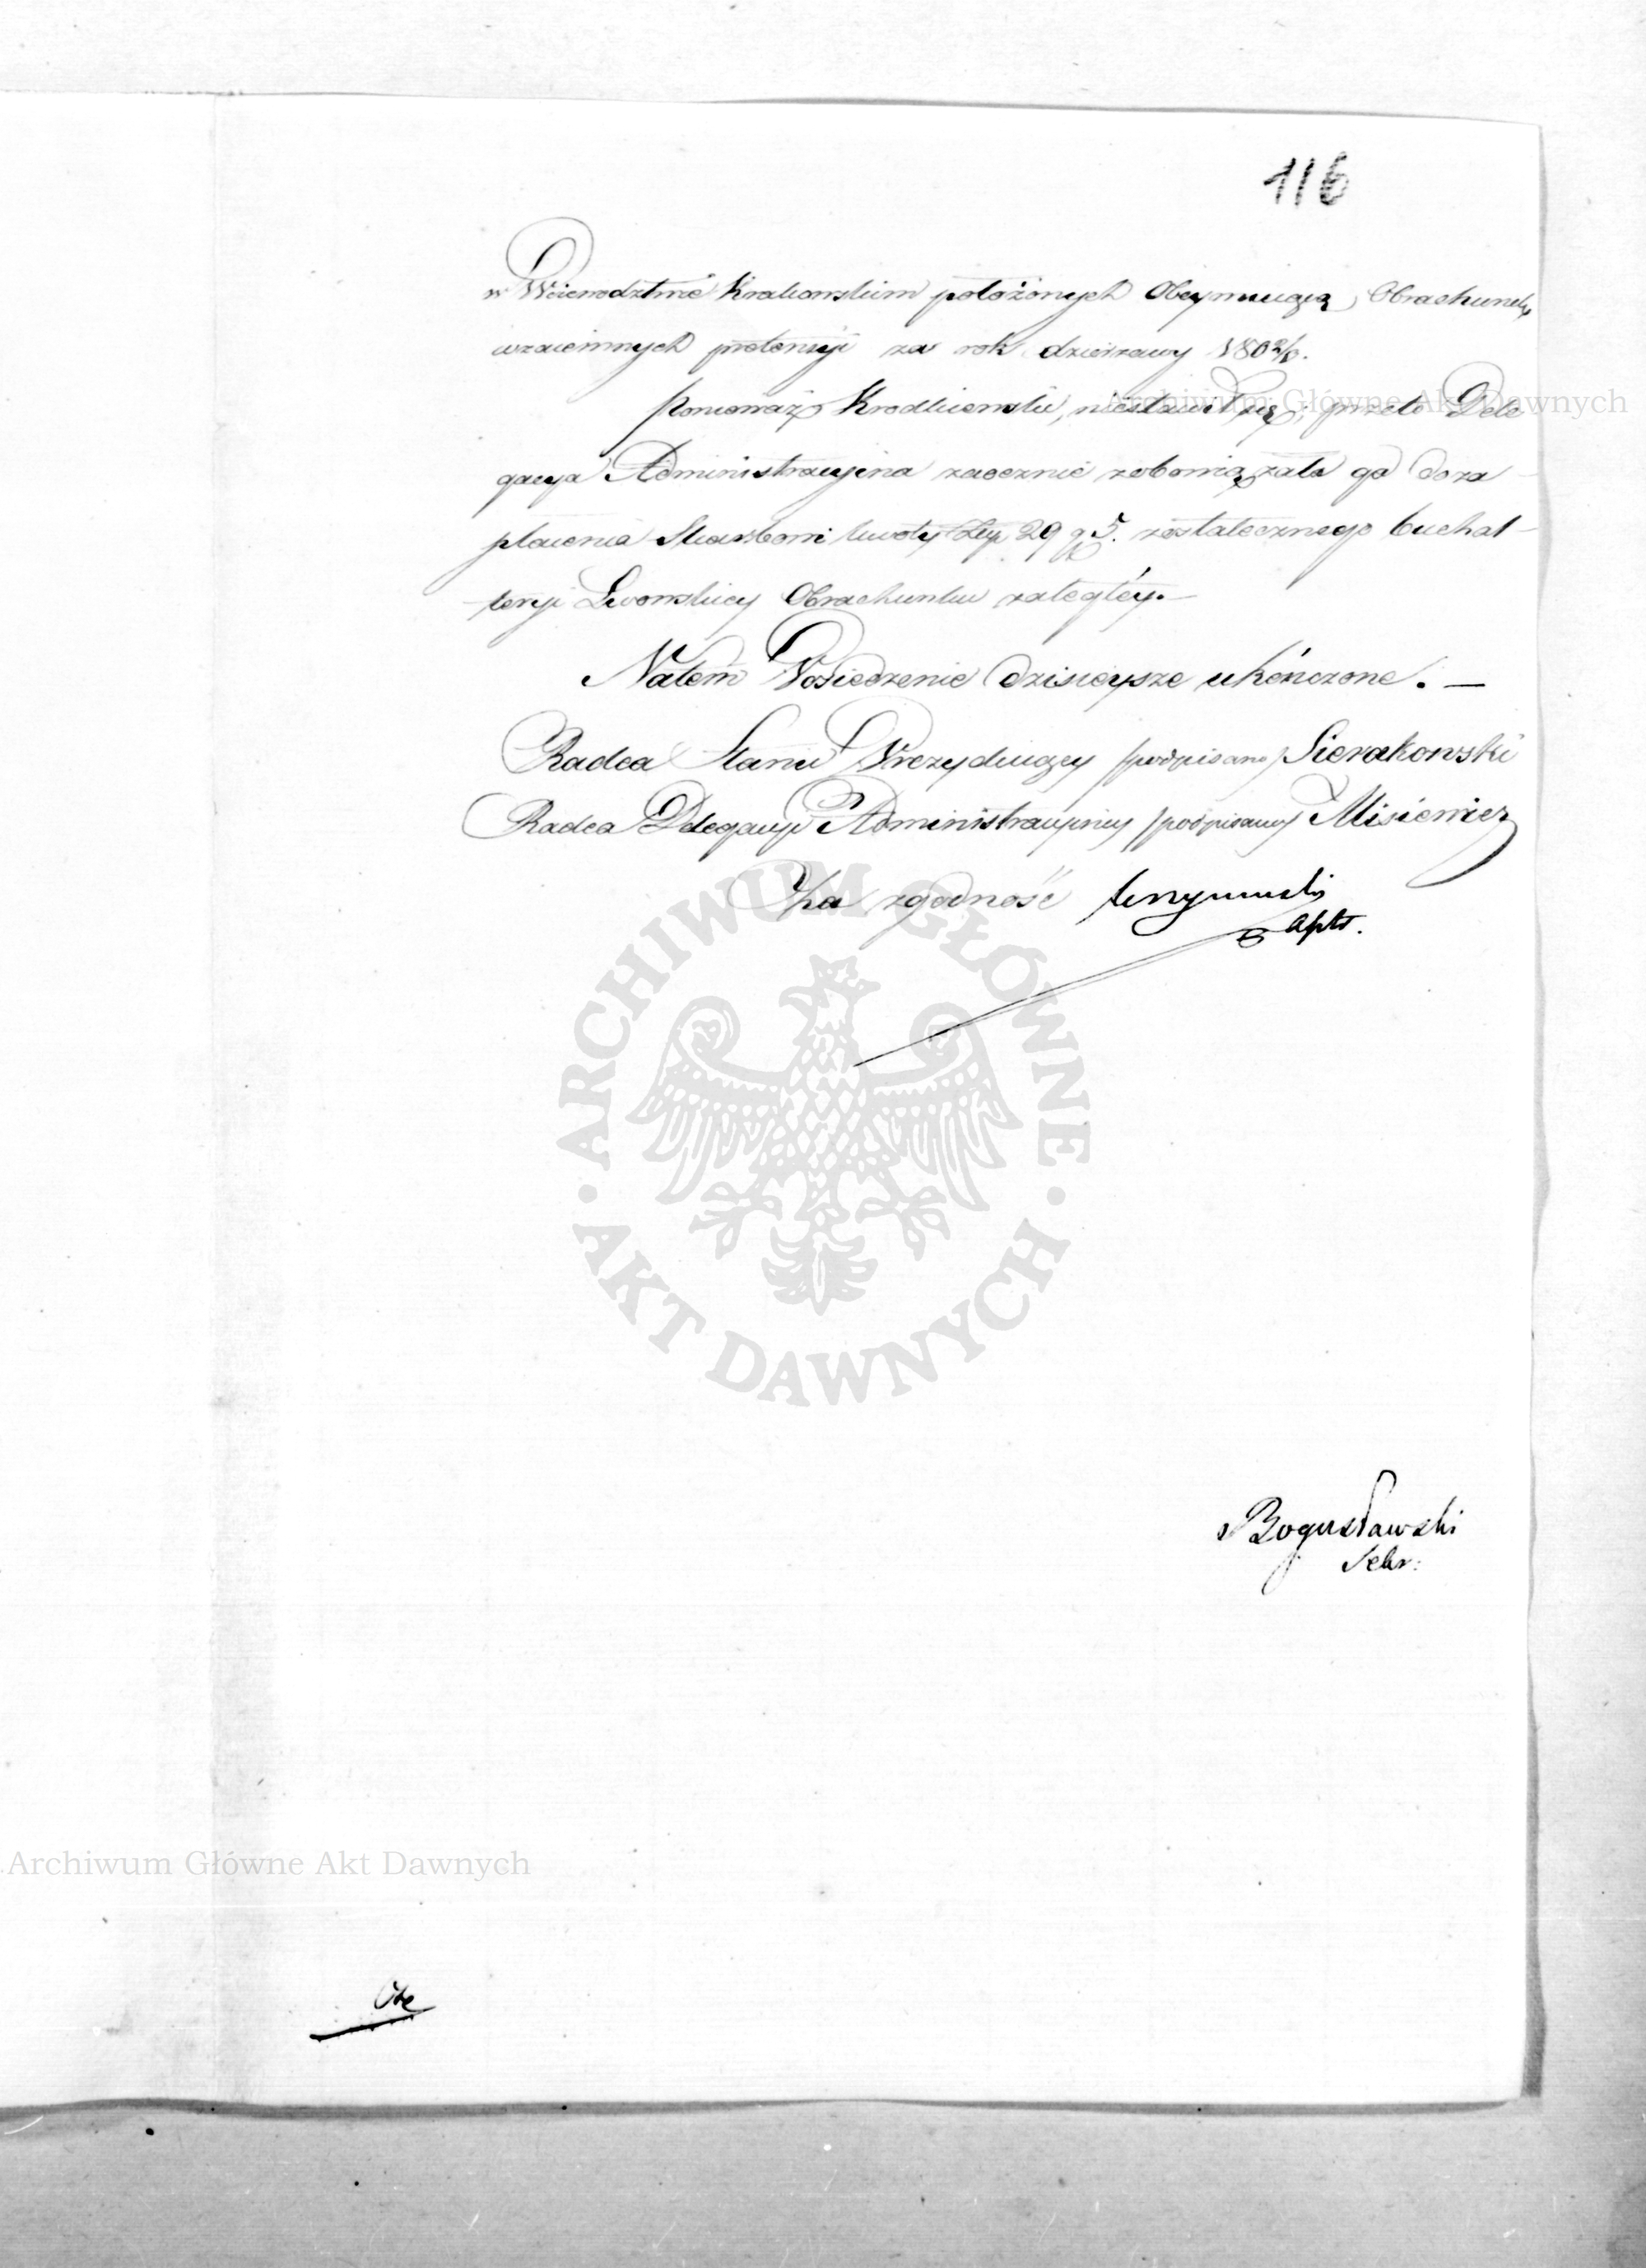 116
w Woiewodztwie Krakowskim położonych Obeymuiącą, Obrachunek
wzaiemnych pretensyi za rok dzierzawy 180
Ponieważ niestawił się, przeto Dele
gacya Administracyina zaocznie zobowiązała go do za
płacenia Skarbowi kwoty 29 5. zostatecznego buchal-
teryi Lwowskiey Obrachunku zaległey.—
Natem Posiedzenie dzisieysze ukończone. —
Radca Stanu Prezyduiący /podpisano/ Sierakowski
Radca Delegacyi Administracyiney /podpisano/ Misiewicz
Za zgodność
Apkt.
Bogusławski
Sekr:
Archiwum Główne Akt Dawnych
ARCHIWUM GŁÓWNE
· AKT DAWNYCH ·
Archiwum Główne Akt Dawnych